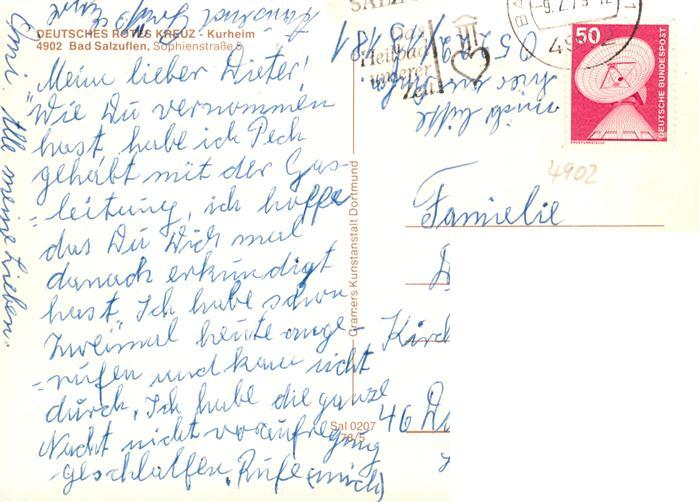 DEUTSCHES ROTES KREUZ - Kurheim
4902 Bad Salzuflen, Sophienstraße 5
Mein lieber Dieter!
Wie Du vernommen
hast, habe ich Pech
gehabt mit der Gas-
-leitung, ich hoffe
das Du Dich mal
danach erkundigt
hast. Ich habe schon
Zweimal heute ange-
-rufen und kam nicht
durch. Ich habe die ganze
Nacht nicht vor aufregung
geschlaffen. Rufe (mich)
mich bitte
hier an
05222/
181
Omi. All meine Lieben.
Cramers Kunstanstalt Dortmund
Sal 0207
78/5
Das
Heilbad
unserer
Zeit
-9.2.79-12
4902
50
DEUTSCHE BUNDESPOST
ERDFUNKSTELLE
4902
Famielie
Kirch
46 Du